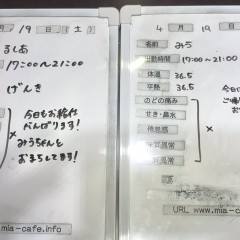 月 19 日 (土)
るしあ
17:00〜21:00
げんき
今日もお給仕
がんばります!
みうちゃんと
おまちしてます!
mia-cafe.info
4 月 19 日
名前 みう
出勤時間 17:00〜21:00
体温 36.5
平熱 36.5
のどの痛み
せき・鼻水
倦怠感
味覚異常
嗅覚異常
URL www.mia-c